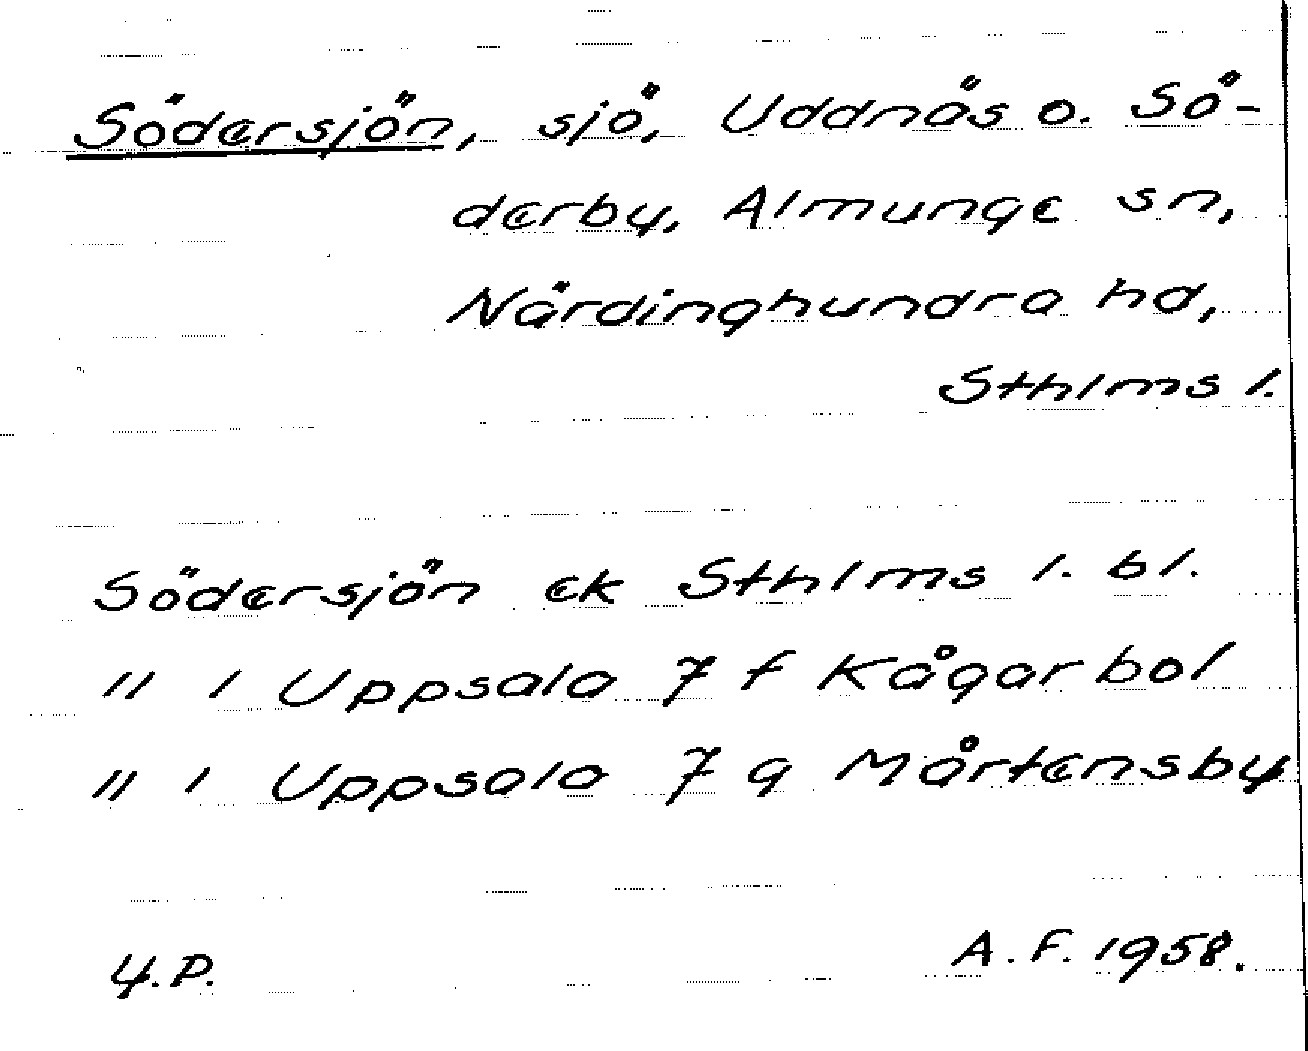 Södersjön, sjö, Uddnäs o. Sö-
derby, Almunge sn,
Närdinghundra hd,
Sthlms l.
Södersjön ek Sthlms l. bl.
" 1 Uppsala 7 f Kågarbol
" 1 Uppsala 7 g Mårtensby
4.P.
A.F. 1958.